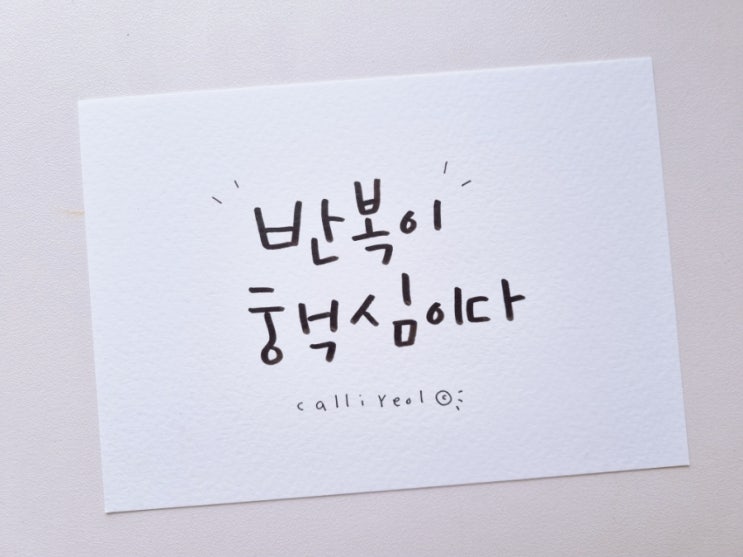 반복이
핵심이다
calliyeol ©